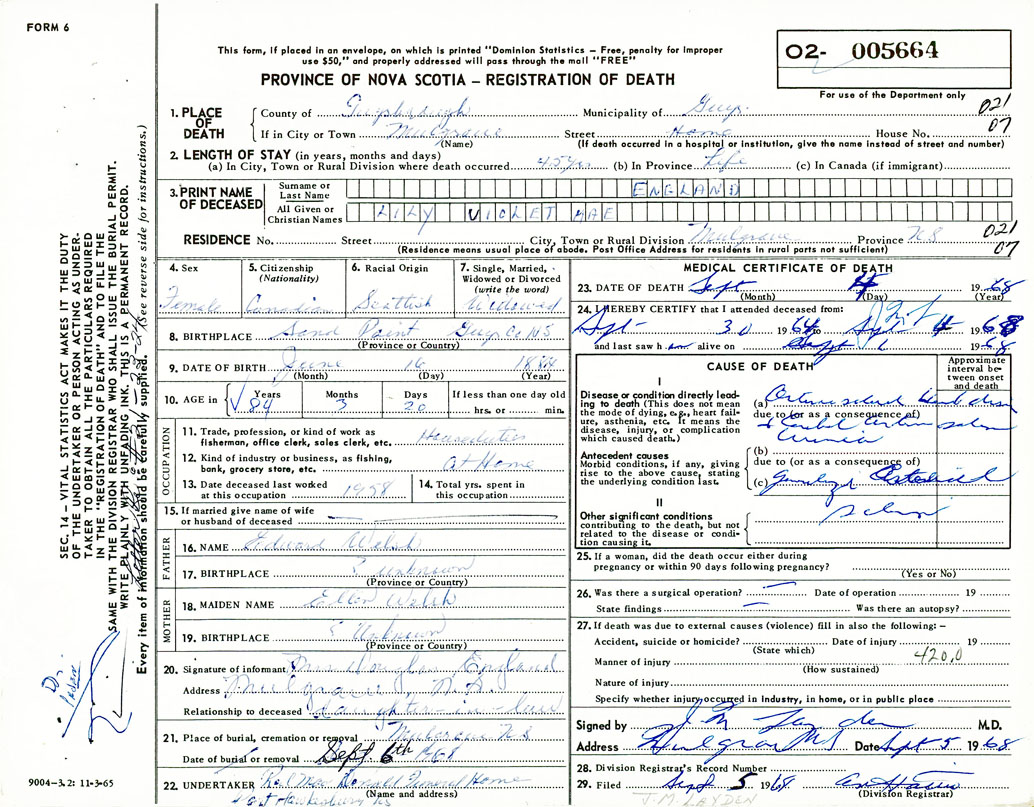 FORM 6
This form, if placed in an envelope, on which is printed "Dominion Statistics – Free, penalty for improper
use $50," and properly addressed will pass through the mail "FREE"
PROVINCE OF NOVA SCOTIA – REGISTRATION OF DEATH
02- 005664
For use of the Department only
021
07
1. PLACE OF DEATH
County of Municipality of Guys.
If in City or Town Mulgrave Street Home House No.
(Name) (If death occurred in a hospital or institution, give the name instead of street and number)
2. LENGTH OF STAY (in years, months and days)
(a) In City, Town or Rural Division where death occurred 45 yrs (b) In Province Life (c) In Canada (if immigrant)
3. PRINT NAME OF DECEASED
Surname or Last Name ENGLAND
All Given or Christian Names LILY VIOLET MAE
RESIDENCE No. Street City, Town or Rural Division Mulgrave Province N S
021
07
(Residence means usual place of abode. Post Office Address for residents in rural parts not sufficient)
4. Sex
Female
5. Citizenship (Nationality)
Canadian
6. Racial Origin
Scottish
7. Single, Married, Widowed or Divorced (write the word)
Widowed
8. BIRTHPLACE Sand Point Guys. Co N S
(Province or Country)
9. DATE OF BIRTH June 1884
(Month) (Day) (Year)
10. AGE in Years 84 Months 3 Days 20 If less than one day old hrs. or min.
OCCUPATION
11. Trade, profession, or kind of work as fisherman, office clerk, sales clerk, etc. Houseduties
12. Kind of industry or business, as fishing, bank, grocery store, etc. At Home
13. Date deceased last worked at this occupation 1958
14. Total yrs. spent in this occupation
15. If married give name of wife or husband of deceased
FATHER
16. NAME Edward Welsh
17. BIRTHPLACE unknown
(Province or Country)
MOTHER
18. MAIDEN NAME Ellen Welsh
19. BIRTHPLACE Unknown
(Province or Country)
20. Signature of informant Mrs Douglas England
Address Mulgrave, N.S.
Relationship to deceased daughter-in-law
21. Place of burial, cremation or removal Mulgrave N S
Date of burial or removal Sept. 6th 1968
22. UNDERTAKER MacDonald Funeral Home
(Name and address)
Port Hawkesbury NS
MEDICAL CERTIFICATE OF DEATH
23. DATE OF DEATH Sept 4 1968
(Month) (Day) (Year)
24. I HEREBY CERTIFY that I attended deceased from:
Sept 30 1964 to Sept 4 1968
and last saw h er alive on Sept 1 1968
CAUSE OF DEATH
Approximate interval between onset and death
I
Disease or condition directly leading to death (This does not mean the mode of dying, e.g., heart failure, asthenia, etc. It means the disease, injury, or complication which caused death.)
(a)
due to (or as a consequence of)
Antecedent causes
Morbid conditions, if any, giving rise to the above cause, stating the underlying condition last.
(b)
due to (or as a consequence of)
(c)
II
Other significant conditions contributing to the death, but not related to the disease or condition causing it.
25. If a woman, did the death occur either during pregnancy or within 90 days following pregnancy?
(Yes or No)
26. Was there a surgical operation? Date of operation 19
State findings Was there an autopsy?
27. If death was due to external causes (violence) fill in also the following: –
Accident, suicide or homicide? Date of injury 19
(State which)
420.0
Manner of injury
(How sustained)
Nature of injury
Specify whether injury occurred in Industry, in home, or in public place
Signed by J M Layden M.D.
Address Mulgrave NS Date Sept 5 1968
28. Division Registrar's Record Number
29. Filed Sept 5 1968
(Division Registrar)
J. M. LAYDEN
9004-3.2: 11-3-65
SEC. 14 – VITAL STATISTICS ACT MAKES IT THE DUTY
OF THE UNDERTAKER OR PERSON ACTING AS UNDER-
TAKER TO OBTAIN ALL THE PARTICULARS REQUIRED
IN THE "REGISTRATION OF DEATH" AND TO FILE THE
SAME WITH THE DIVISION REGISTRAR WHO SHALL ISSUE THE BURIAL PERMIT.
WRITE PLAINLY WITH UNFADING INK. THIS IS A PERMANENT RECORD.
Every item of information should be carefully supplied. (See reverse side for instructions.)
Dr. Layden